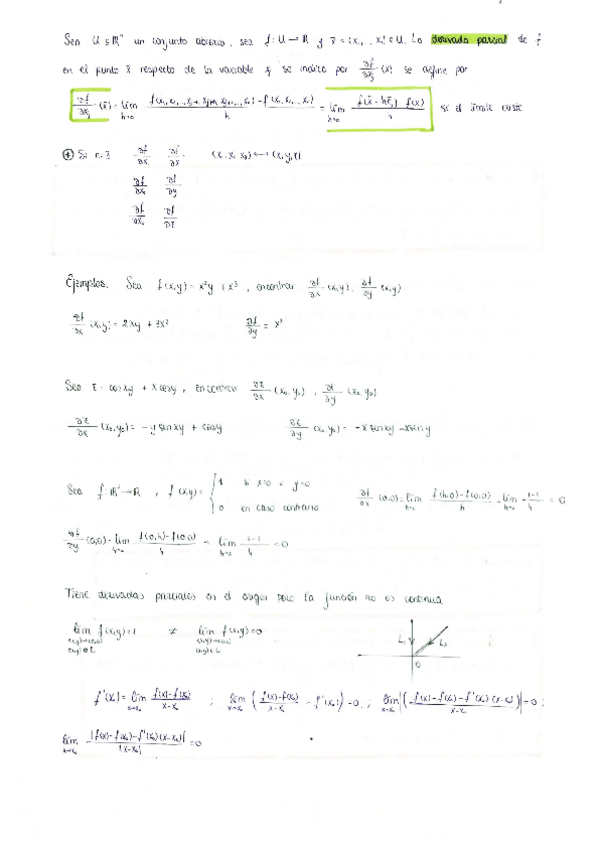 Sea U ⊆ ℝⁿ un conjunto abierto, sea f: U → ℝ y x̄ = (x₁,..., xₙ) ∈ U. La derivada parcial de f
en el punto x̄ respecto de la variable xⱼ se indica por ∂f/∂xⱼ (x̄) se define por
∂f/∂xⱼ (x̄) = lim h→0 = lim h→0 si el límite existe
Si n=3 ∂f/∂x ∂f/∂x (x,y,z)
∂f/∂x₂ ∂f/∂y
∂f/∂x₃ ∂f/∂z
Ejemplos. Sea f(x,y) = x²y + x³, encontrar ∂f/∂x (x,y), ∂f/∂y (x,y)
∂f/∂x (x,y) = 2xy + 3x² ∂f/∂y = x²
Sea z = cosxy + x cosy, encontrar ∂z/∂x (x₀,y₀), ∂z/∂y (x₀,y₀)
∂z/∂x (x₀,y₀) = -y senxy + cosy ∂z/∂y (x₀,y₀) = -x senxy - xsen y
Sea f: ℝ² → ℝ, f(x,y) = { 1 si x=0 o y=0
0 en caso contrario
∂f/∂x (0,0) = lim h→0 (f(h,0)-f(0,0))/h = lim h→0 (1-1)/h = 0
∂f/∂y (0,0) = lim h→0 (f(0,h)-f(0,0))/h = lim h→0 (1-1)/h = 0
Tiene derivadas parciales en el origen pero la función no es continua
lim f(x,y) = 1 ≠ lim f(x,y) = 0
L₁ L₂
0
f'(x₀) = lim x→x₀ (f(x)-f(x₀))/(x-x₀) ; lim x→x₀ ((f(x)-f(x₀))/(x-x₀) - f'(x₀)) = 0 ; lim x→x₀ |(f(x)-f(x₀)-f'(x₀)(x-x₀))/(x-x₀)| = 0 ;
lim x→x₀ |f(x)-f(x₀)-f'(x₀)(x-x₀)|/|x-x₀| = 0